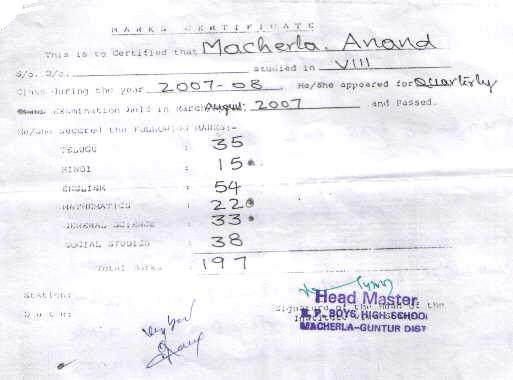 MARKS CERTIFICATE
This is to Certified that Macherla. Anand
S/o. D/o. studied in VIII
Class during the year 2007-08 He/She appeared for Quarterly
Examination held in March August 2007 and Passed.
He/She secured the FOLLOWING MARKS:-
TELUGU : 35
HINDI : 15
ENGLISH : 54
MATHEMATICS : 22
GENERAL SCIENCE : 33
SOCIAL STUDIES : 38
Total Marks 197
Station:
Date:
Signature of the Head of the
Institute
Head Master
Z.P. BOYS HIGH SCHOOL
MACHERLA-GUNTUR DIST